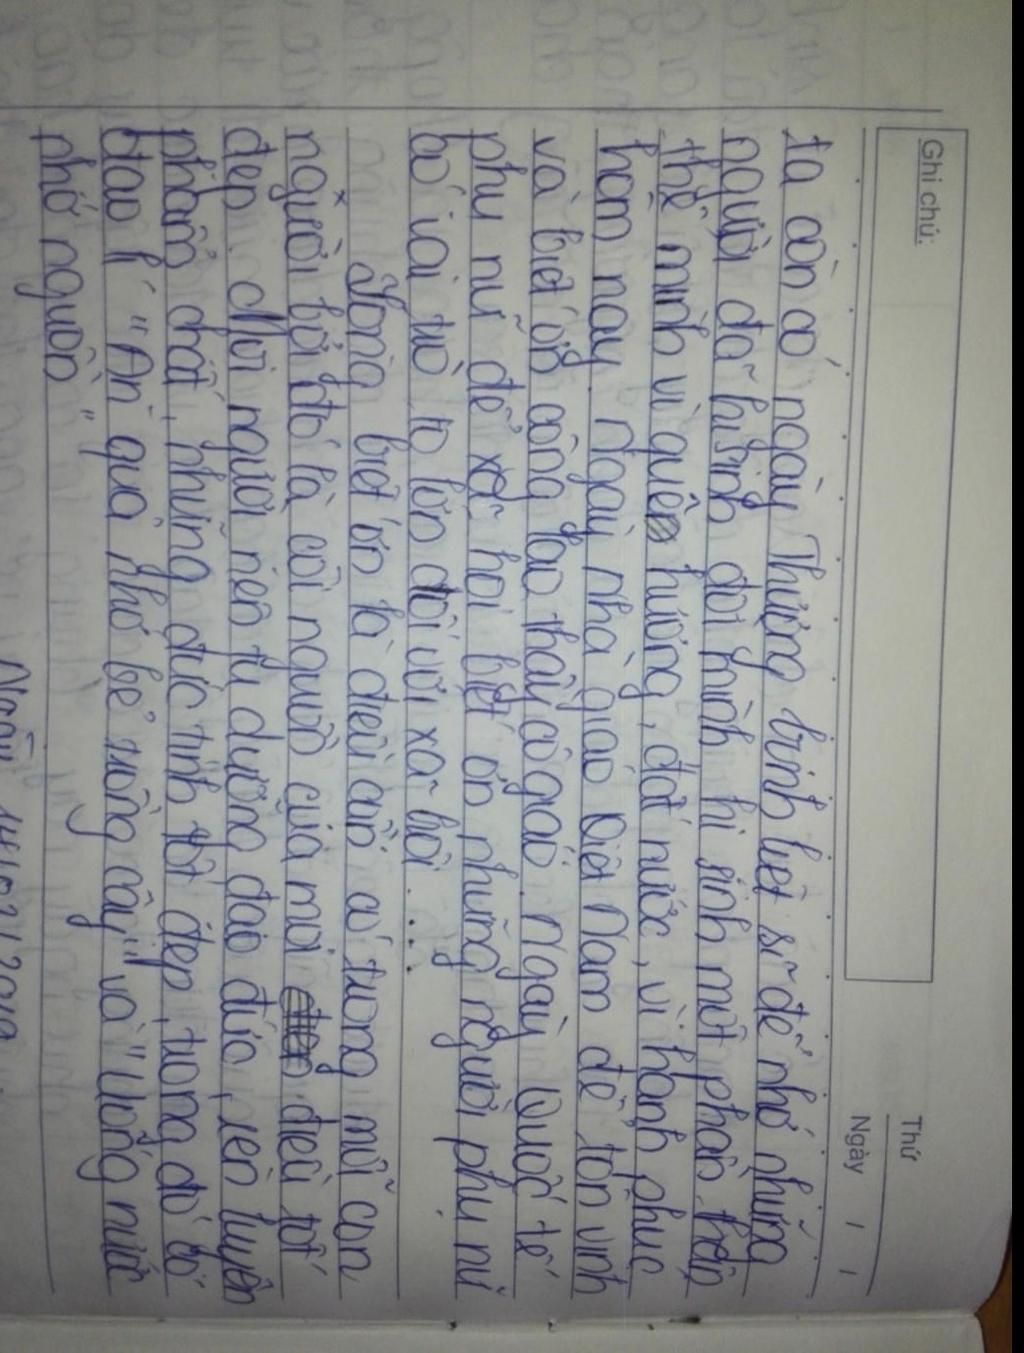 Ghi chú:
Thứ
Ngày / /
ta còn có ngày Thương binh liệt sĩ để nhớ những
người đã hi sinh đời mình hi sinh một phần thân
thể mình vì quên hương, đất nước, vì hạnh phúc
hôm nay. Ngày nhà giáo Việt Nam để tôn vinh
và biết ơn công lao thầy cô giáo. Ngày Quốc tế
phụ nữ để xã hội biết ơn những người phụ nữ
bởi vai trò to lớn đối với xã hội...
Lòng biết ơn là điều cần có trong mỗi con
người bởi đó là cội nguồn của mọi điều tốt
đẹp. Mỗi người nên tu dưỡng đạo đức, rèn luyện
phẩm chất, những đức tính tốt đẹp, trong đó có
Đạo lí "Ăn quả nhớ kẻ trồng cây" và "Uống nước
nhớ nguồn"
Ngày